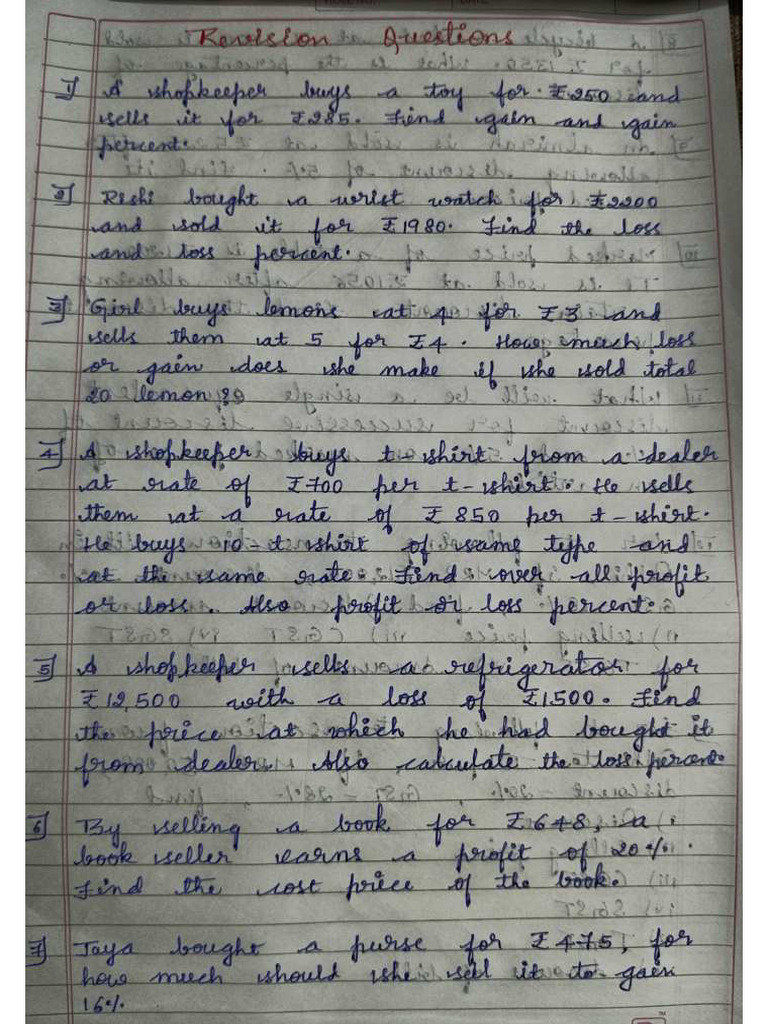 Revision Questions
1) A shopkeeper buys a toy for ₹250 and
sells it for ₹285. Find gain and gain
percent.
2) Rishi bought a wrist watch for ₹2200
and sold it for ₹1980. Find the loss
and loss percent.
3) Girl buys lemons at 4 for ₹3 and
sells them at 5 for ₹4. How much loss
or gain does she make if she sold total
20 lemon?
4) A shopkeeper buys t-shirt from a dealer
at rate of ₹700 per t-shirt. He sells
them at a rate of ₹850 per t-shirt.
He buys 10-t shirt of same type and
at the same rate. Find over all profit
or loss. Also profit or loss percent.
5) A shopkeeper sells a refrigerator for
₹12,500 with a loss of ₹1500. Find
the price at which he had bought it
from dealer. Also calculate the loss percent.
6) By selling a book for ₹648, a
book seller earns a profit of 20%.
Find the cost price of the book.
7) Jaya bought a purse for ₹475, for
how much should she sell it to gain
16%